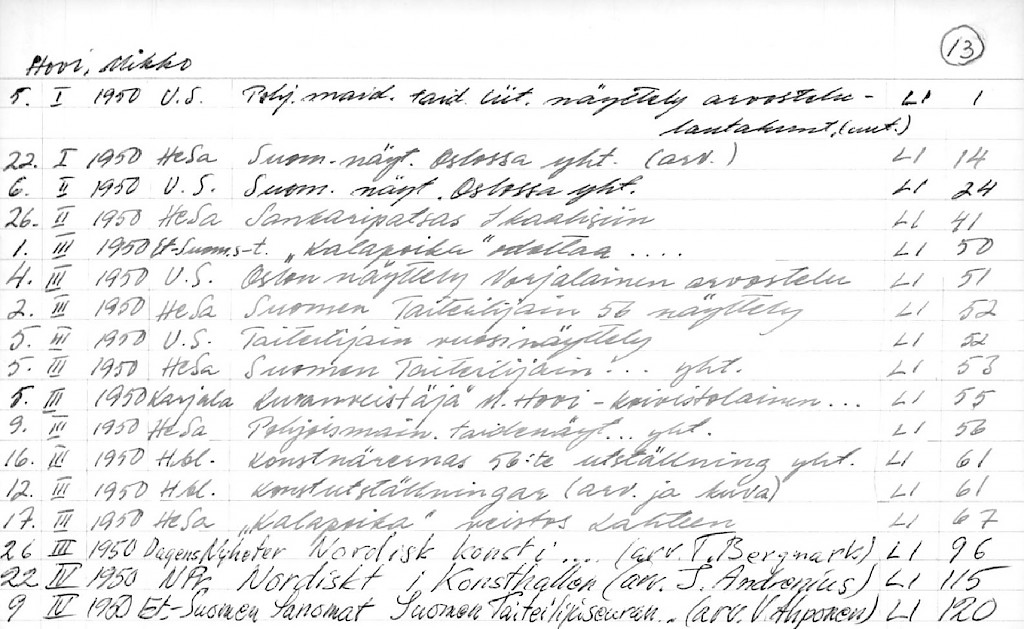 13
Hovi, Mikko
5. I 1950 U.S. Pohj. maid. taid. liit. näyttely arvostelu- LI 1
lautakunt. (uut.)
22. I 1950 HeSa Suom. näyt. Oslossa yht. (arv.) LI 14
6. II 1950 U.S. Suom. näyt. Oslossa yht. LI 24
26. II 1950 HeSa Sankaripatsas Ikaalisiin LI 41
1. III 1950 Et-Suom.s-t. „Kalapoika" odottaa .... LI 50
4. III 1950 U.S. Oslon näyttely Norjalainen arvostelu LI 51
2. III 1950 HeSa Suomen Taiteilijain 56 näyttely LI 52
5. III 1950 U.S. Taiteilijain vuosinäyttely LI 52
5. III 1950 HeSa Suomen Taiteilijain ... yht. LI 53
5. III 1950 Karjala Kuvanveistäjä M. Hovi - koivistolainen ... LI 55
9. III 1950 HeSa Pohjoismain. taidenäyt... yht. LI 56
16. III 1950 H.bl. Konstnärernas 56:te utställning yht. LI 61
12. III 1950 H.bl. Konstutställningar (arv. ja kuva) LI 61
17. III 1950 HeSa „Kalapoika" veistos Lahteen LI 67
26 III 1950 Dagens Nyheter Nordisk konst i ... (arv. T. Bergmark) LI 96
22 IV 1950 NPr Nordiskt i Konsthallen (arv. S. Andronius) LI 115
9 IV 1950 Et-Suomen Sanomat Suomen Taiteilijaseuran.. (arv. V. Ahponen) LI 120